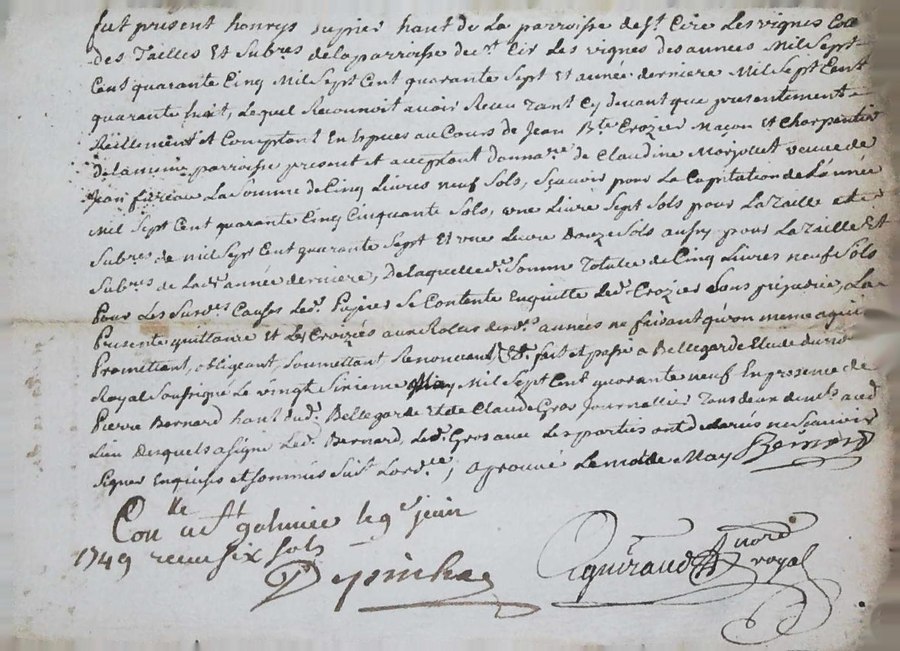 fut present honrys pupier hant de La parroisse de St Cire Les vignes
des Tailles Et Subres de la parroisse de st Cir Les vignes des années Mil Sept
Cent quarante Cinq Mil Sept Cent quarante Sept Et année derniere Mil Sept Cent
quarante huit, Lequel Reconnoit avoir Receu Tant Cy devant que presentement
Réellement et Comptant En Espces au Cours de Jean Bte Crozier Maçon Et Charpentier
de La meme parroisse present et acceptant donnare de Claudine Marjollet veuve de
Jean La Somme de Cinq Livres neuf Sols, Sçavoir pour La Capitation de L'année
Mil Sept Cent quarante Cinq Cinquante Sols, une Livre Sept Sols pour La Taille et
Subres de mil Sept Cent quarante Sept Et une Livre Douze Sols aussy pour La Taille Et
Subres de Lade année derniere, De laquelle de Somme Totalle de Cinq Livres neuf Sols
Pour Les Susdes Causes Led. Pupier Se Contente Enquitte Led. Crozier Sans prejudice, a La
Presente quittance et Les Croizées aux Rolles desds années ne faisant qu'un meme aquit
Promettant, obligeant, Soumettant, Renonceant, &c. fait et passé a Bellegarde Etude du nore
Royal Soussigné Le vingt Sixieme May Mil Sept Cent quarante neuf En presence de
Pierre Bernard hant dud. Bellegarde Et de Claude Gros Journallier Tous deux dud
Lieu Desquels a Signé Led. Bernard, Led. Gros avec Les parties ont declarés ne Scavoir
Signer Enquises et Sommés Suivt Lordce; aprouvé Le mot de May Bernard
Conlle a St galmier le 9e juin
1749 receu six sols
Depinhac
Aguiraud nore
royal